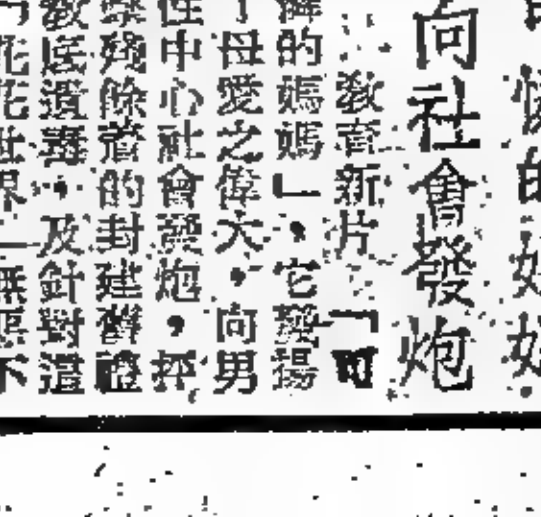 的好好
向社會發炮
教育新片「可
的媽媽」，它發揚
母愛之偉大，向男
性中心社會發炮，抨
殘餘着的封建舊禮
教底遺毒，及針對這
花世界—無惡不